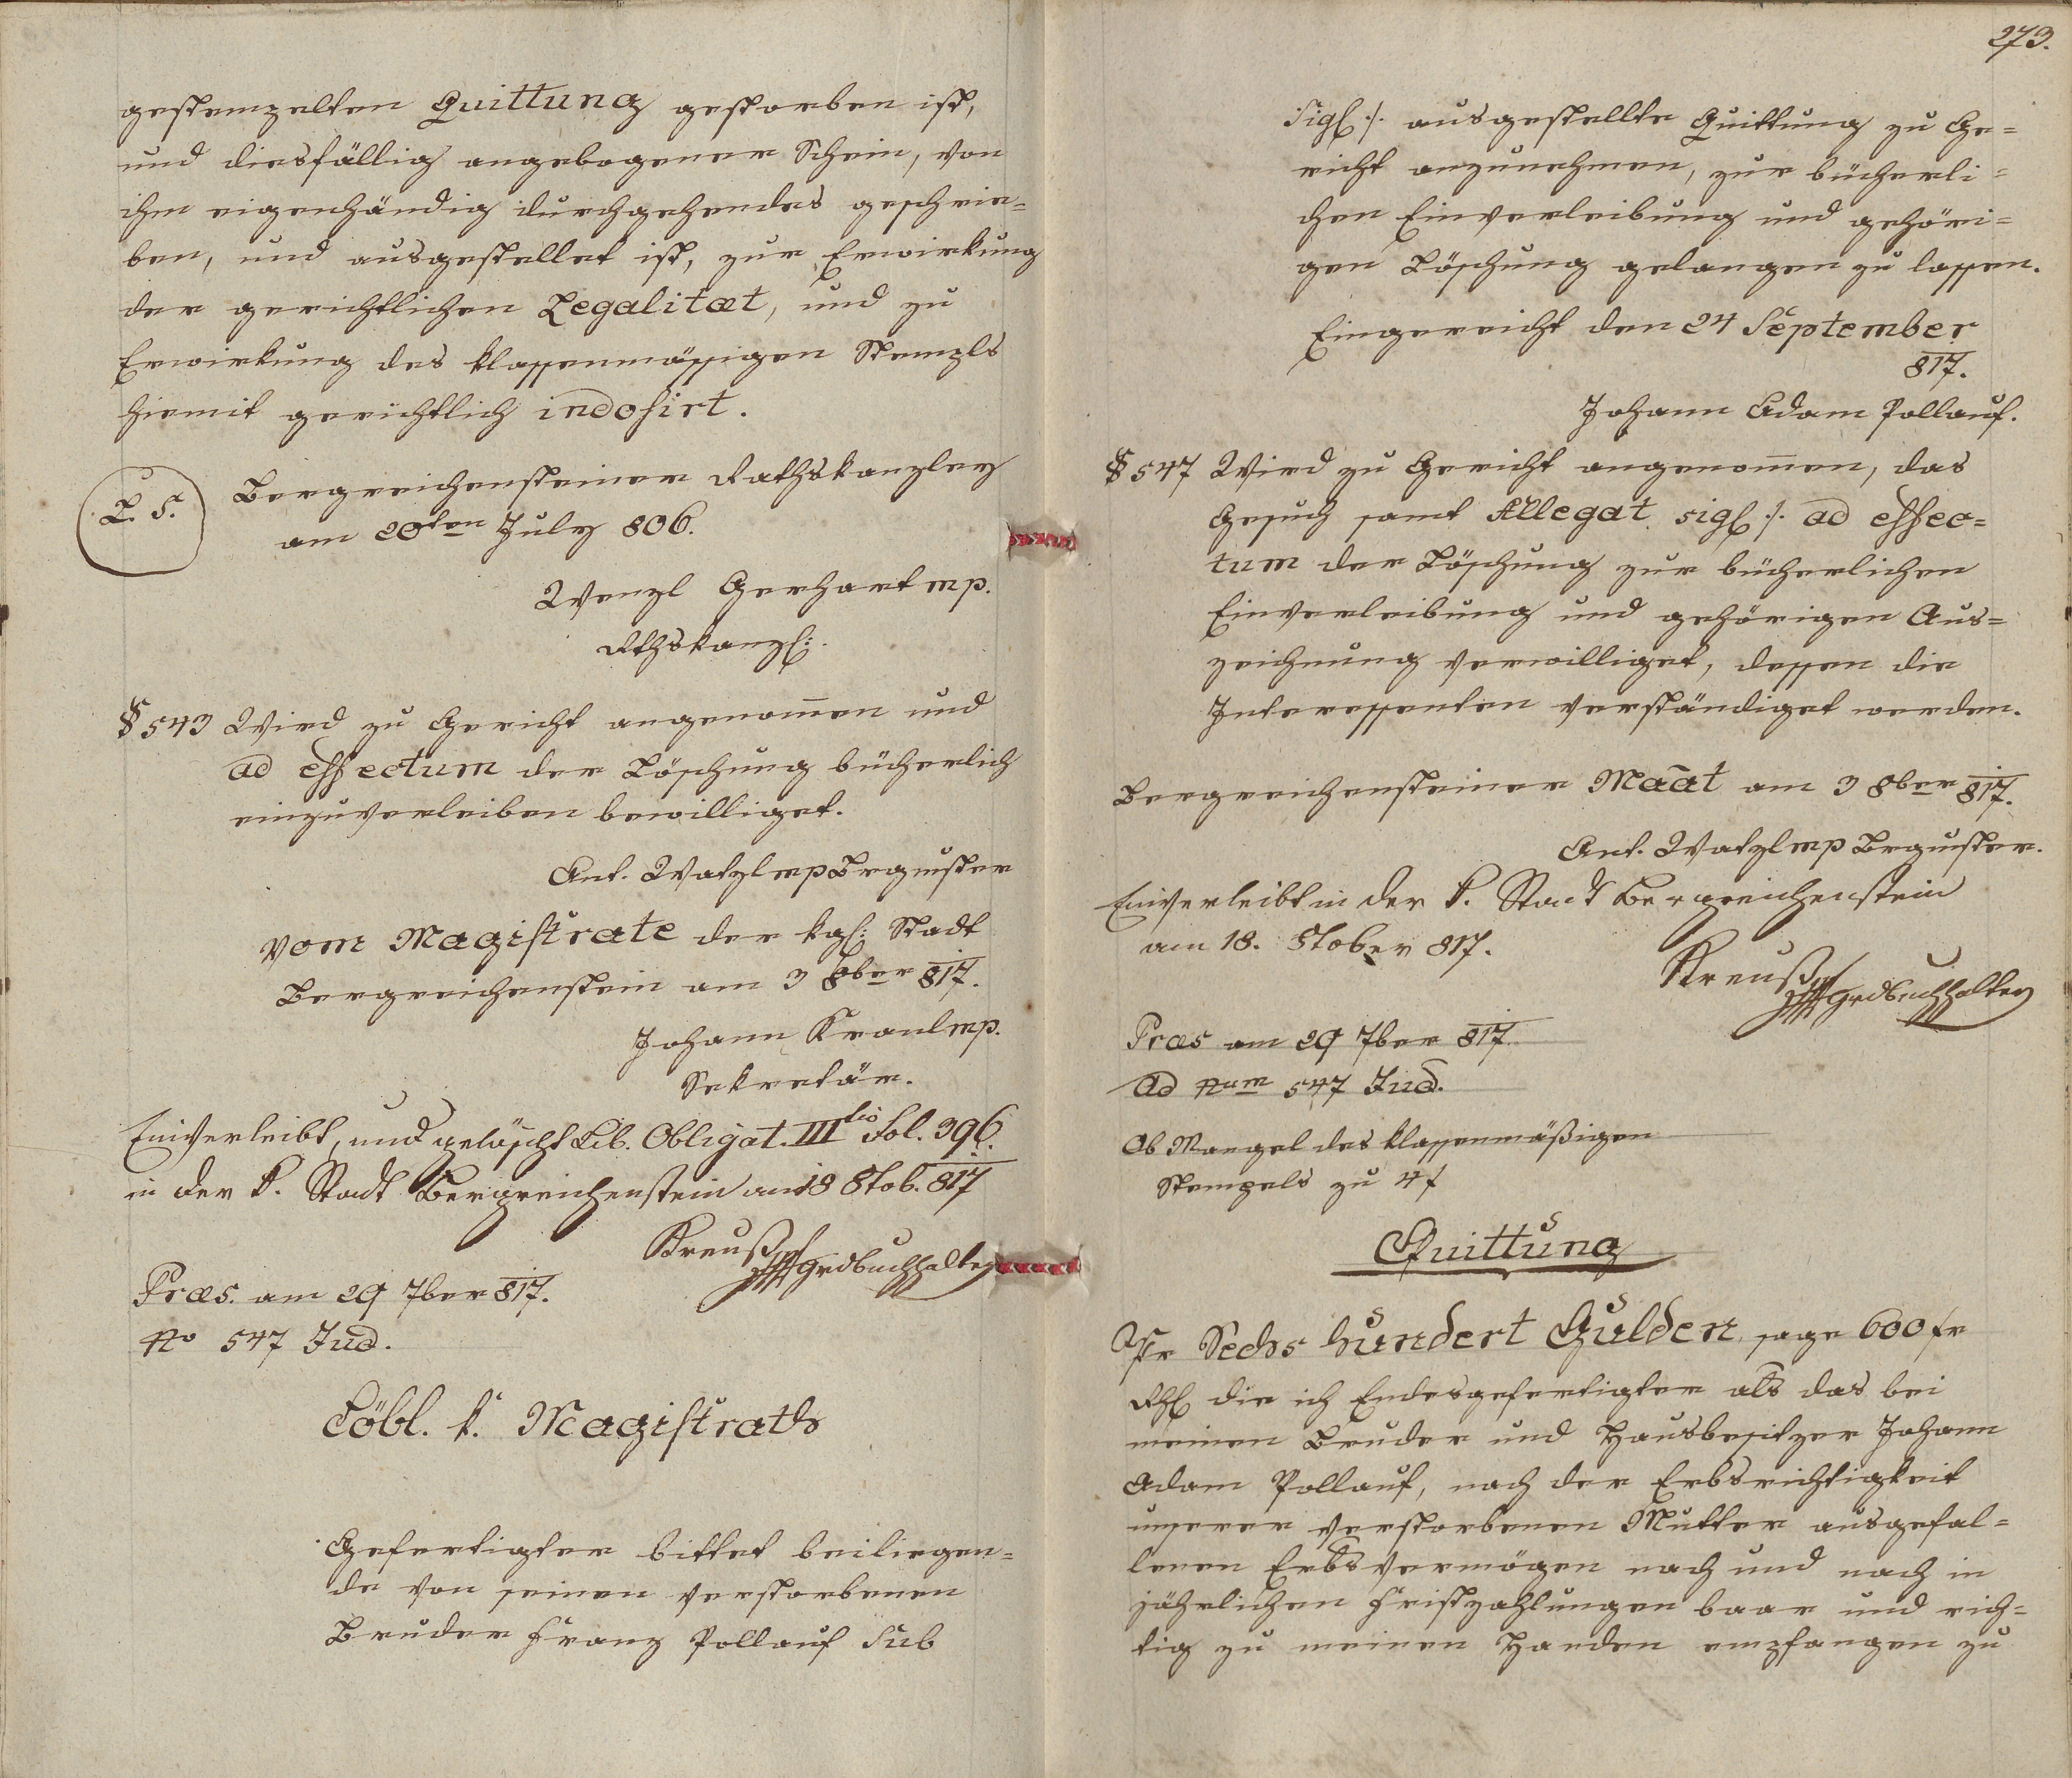 gestempelten Quittung gestorben ist,
und diesfällig angebogener Schein, von
ihm eigenhändig durchgehendes geschrie=
ben, und ausgestellet ist, zur Erwirkung
der gerichtlichen Legalitæt, und zu
Erwirkung des klassenmässigen Stempls
hiemit gerichtlich indosirt.
L. S.
Bergreichensteiner Rathskanzley
am 20ten July 806.
Wenzl Gerhart mp.
Rthskanzl:
§ 543 Wird zu Gericht angenom̄en und
ad effectum der Löschung bücherlich
einzuverleiben bewilliget.
Ant. Watzl mp Brgmster
Vom Magistrate der kgl: Stadt
Bergreichenstein am 3 8ber 817.
Johann Kranl mp.
Sekretär.
Einverleibt, und gelöscht Lib. Obligat. IIItio Fol. 396.
in der k. Stadt Bergreichenstein am 18 8tob. 817
Kreuß mp Grdbuchhalter
Præs. am 29 7ber 817.
No 547 Jud.
Löbl. k. Magistrat
Gefertigter bittet beiliegen=
de von seinen verstorbenen
Bruder Franz Pollauf Sub
273.
Sigl ./. ausgestellte Quittung zu Ge=
richt anzunehmen, zur bücherli=
chen Einverleibung und gehöri=
gen Löschung gelangen zu lassen.
Eingereicht den 24 September
817.
Johann Adam Pollauf.
§ 547 Wird zu Gericht angenom̄en, das
Gesuch samt Allegat sigl ./. ad effec=
tum der Löschung zur bücherlichen
Einverleibung und gehörigen Aus=
zeichnung verwilliget, dessen die
Interessenten verständiget werden.
Bergreichensteiner Maāt am 3 8ber 817.
Ant. Watzl mp Brgmster.
Einverleibt in der k. Stadt Bergreichenstein
am 18. 8tober 817.
Kreuß mp Grdbuchhalter
Præs am 29 7ber 817.
Ad Num 547 Jud.
Ob Mangel des klassenmäßigen
Stempels zu 4 f
Quittung
Pr Sechs hundert Gulden, sage 600 fr
Rhl die ich Endesgefertigter als das bei
meinen Bruder und Hausbesitzer Johann
Adam Pollauf, nach der Erbsrichtigkeit
unserer verstorbenen Mutter ausgefal=
lenen Erbsvermögen nach und nach in
jährlichen Fristzahlungen baar und rich=
tig zu meinen Handen empfangen zu